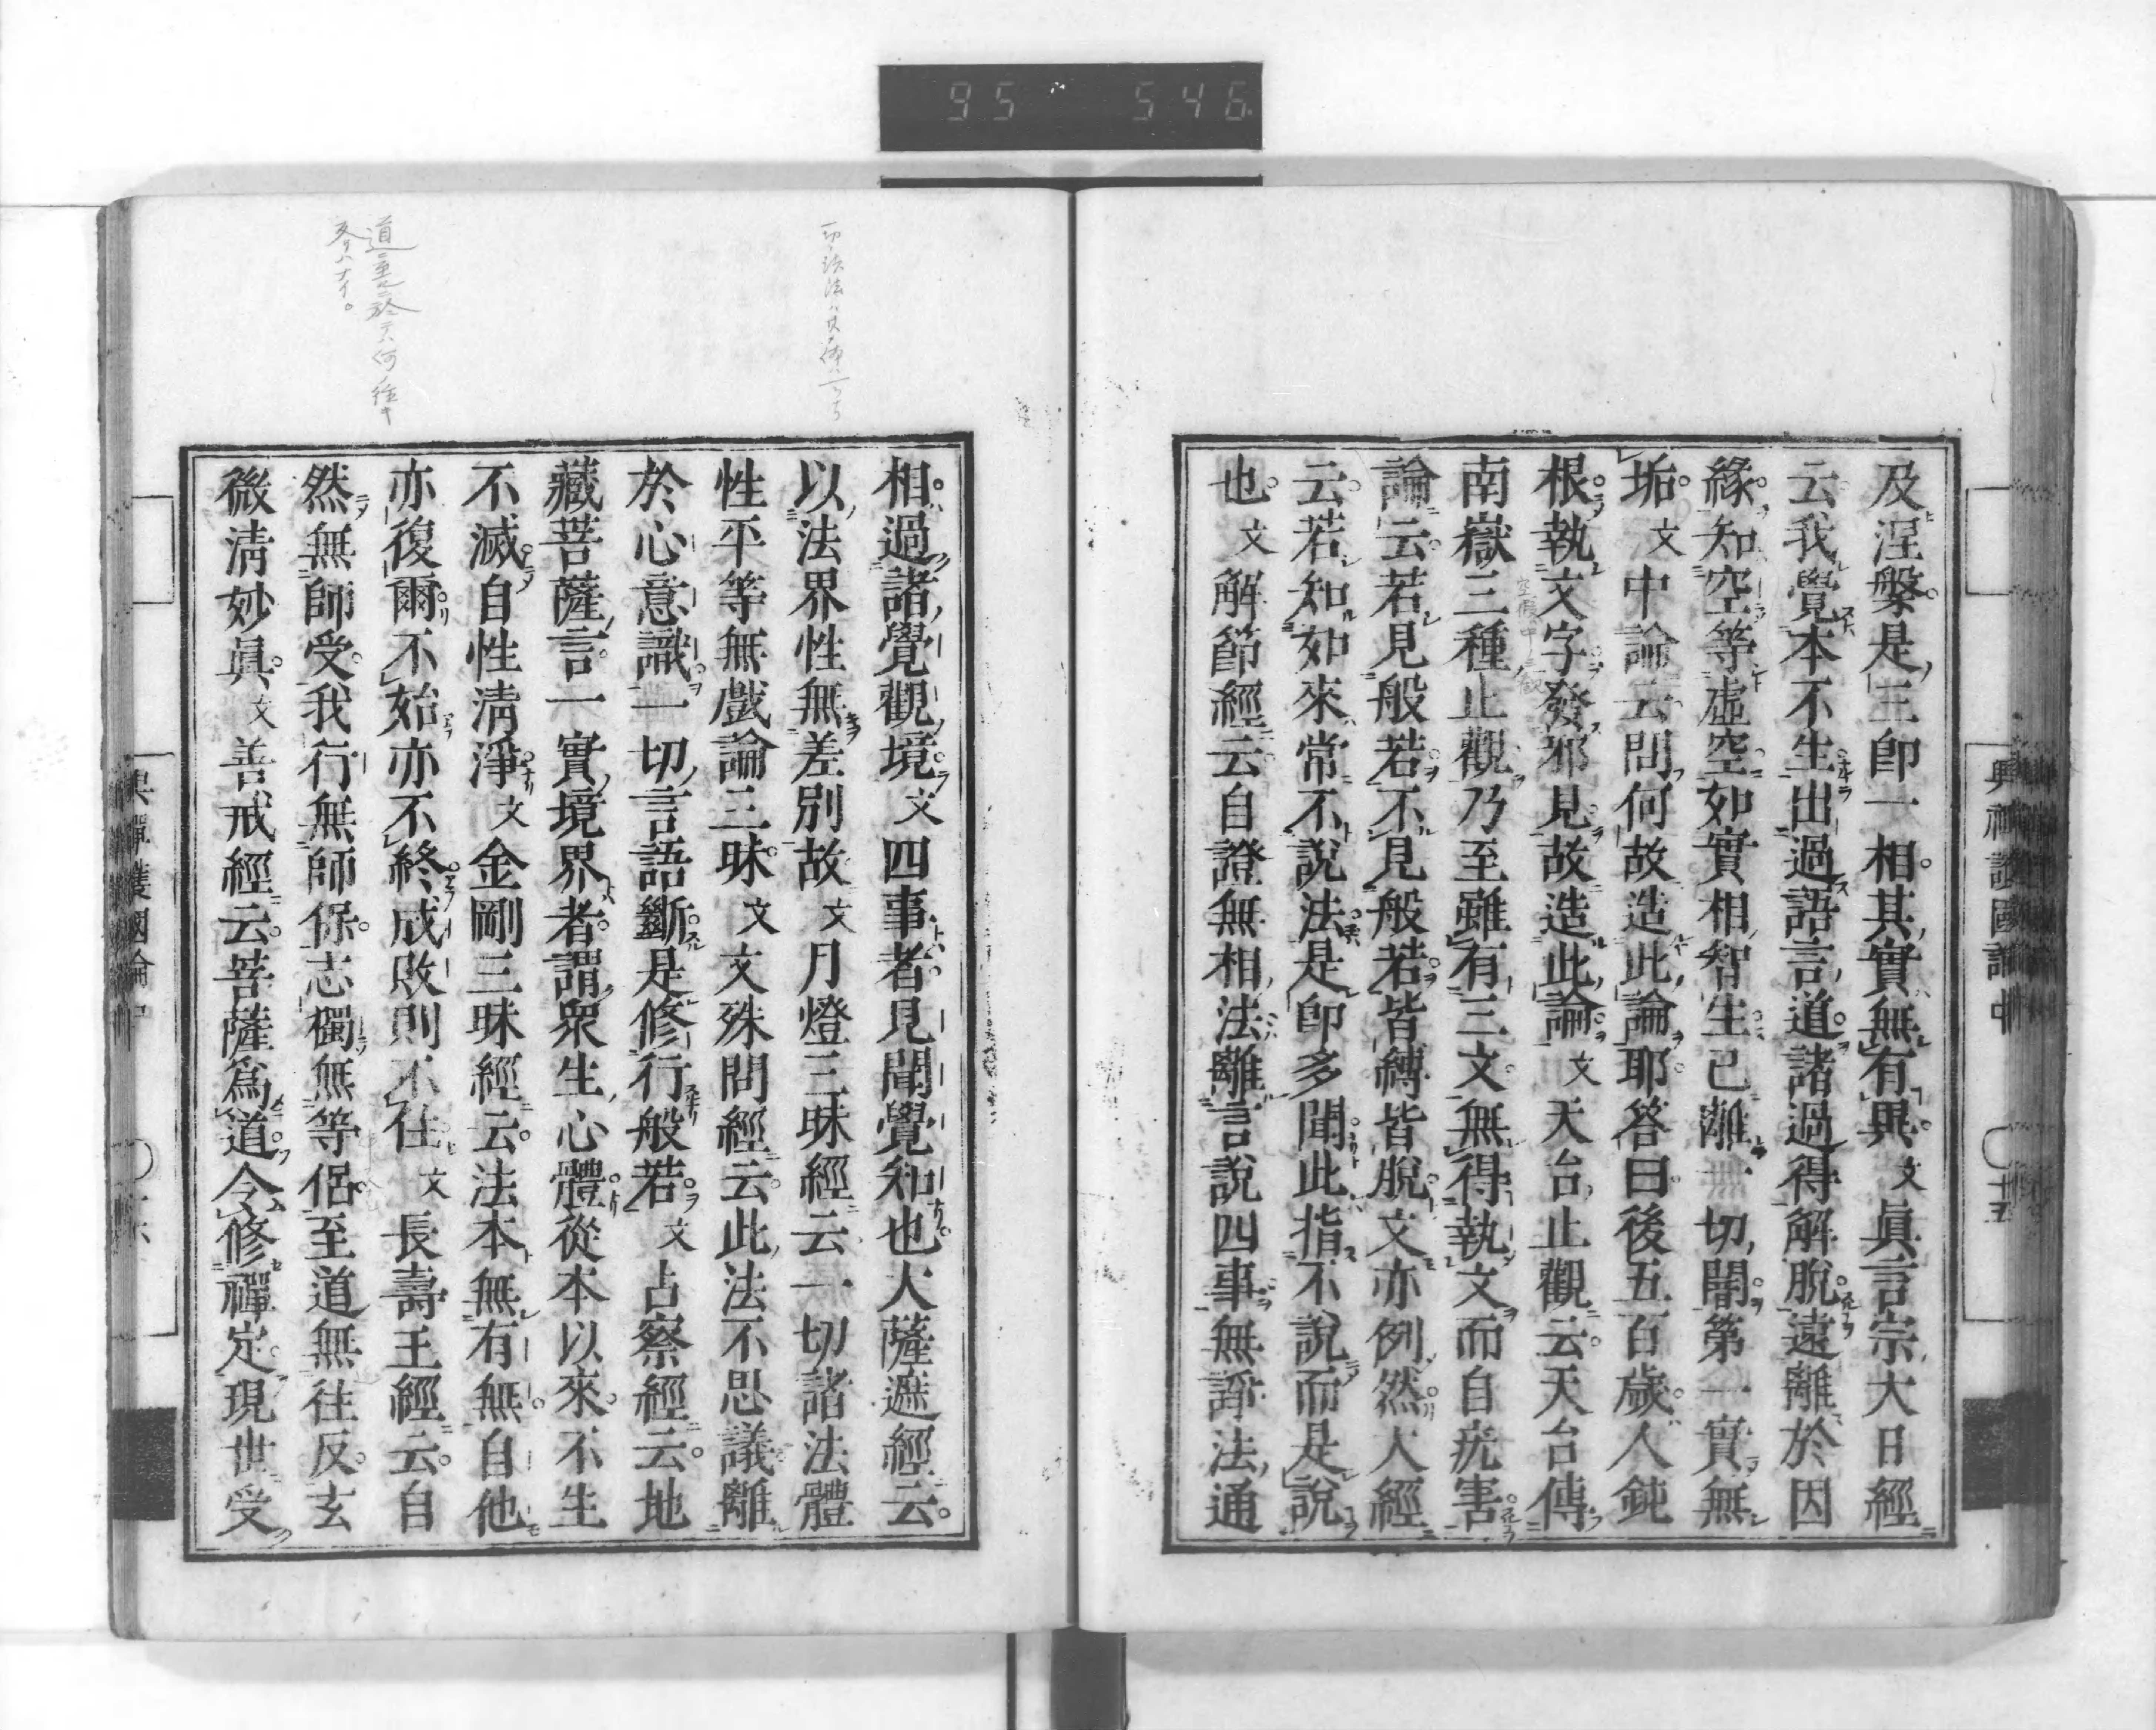 95 546
及涅槃是三卽一相其實無有異文眞言宗大日經
云我覺本不生出過語言道諸過得解脫遠離於因
緣知空等虛空如實相智生已離一切闇第一實無
垢文中論云問何故造此論耶答曰後五百歲人鈍
根執文字發邪見故造此論文天台止觀云天台傳
南嶽三種止觀乃至雖有三文無得執文而自疣害
論云若見般若不見般若皆縛皆脫文亦例然大經
云若知如來常不說法是卽多聞此指不說而是說
也文解節經云自證無相法離言說四事無諍法通
興禪護國論中 十五
相過諸覺觀境文四事者見聞覺知也大薩遮經云
以法界性無差別故文月燈三昧經云一切諸法體
性平等無戲論三昧文文殊問經云此法不思議離
於心意識一切言語斷是修行般若文占察經云地
藏菩薩言一實境界者謂衆生心體從本以來不生
不滅自性淸淨文金剛三昧經云法本無有無自他
亦復爾不始亦不終成敗則不住文長壽王經云自
然無師受我行無師保志獨無等侶至道無往反玄
微淸妙眞文善戒經云菩薩爲道令修禪定現世受
興禪護國論中